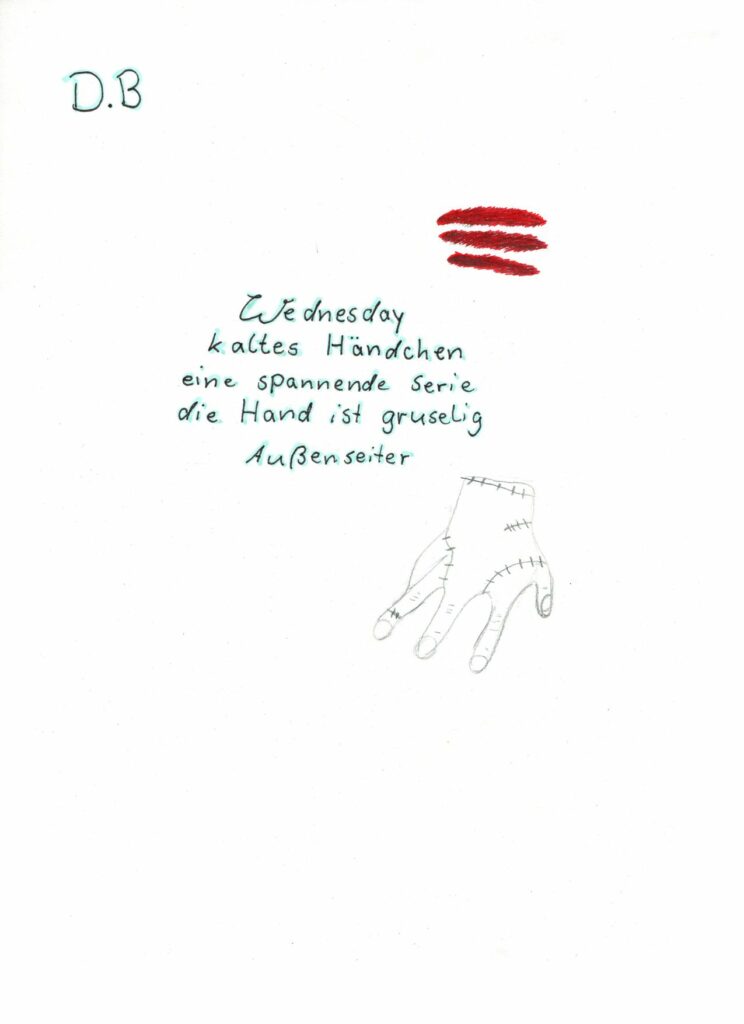 D.B
Wednesday
kaltes Händchen
eine spannende Serie
die Hand ist gruselig
Außenseiter